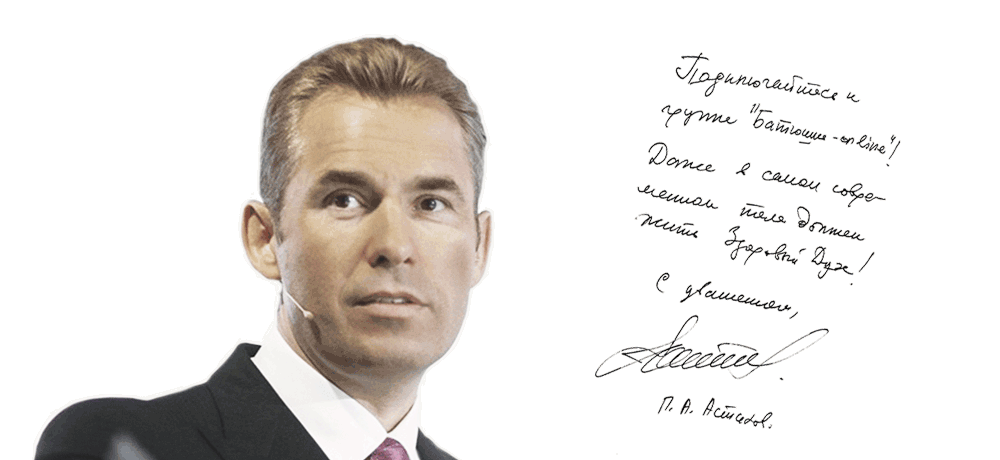 Подключайтесь к
группе "Батюшка-online"!
Даже в самом совре-
менном теле должен
жить Здоровый Дух!
С уважением,
П. А. Астахов.